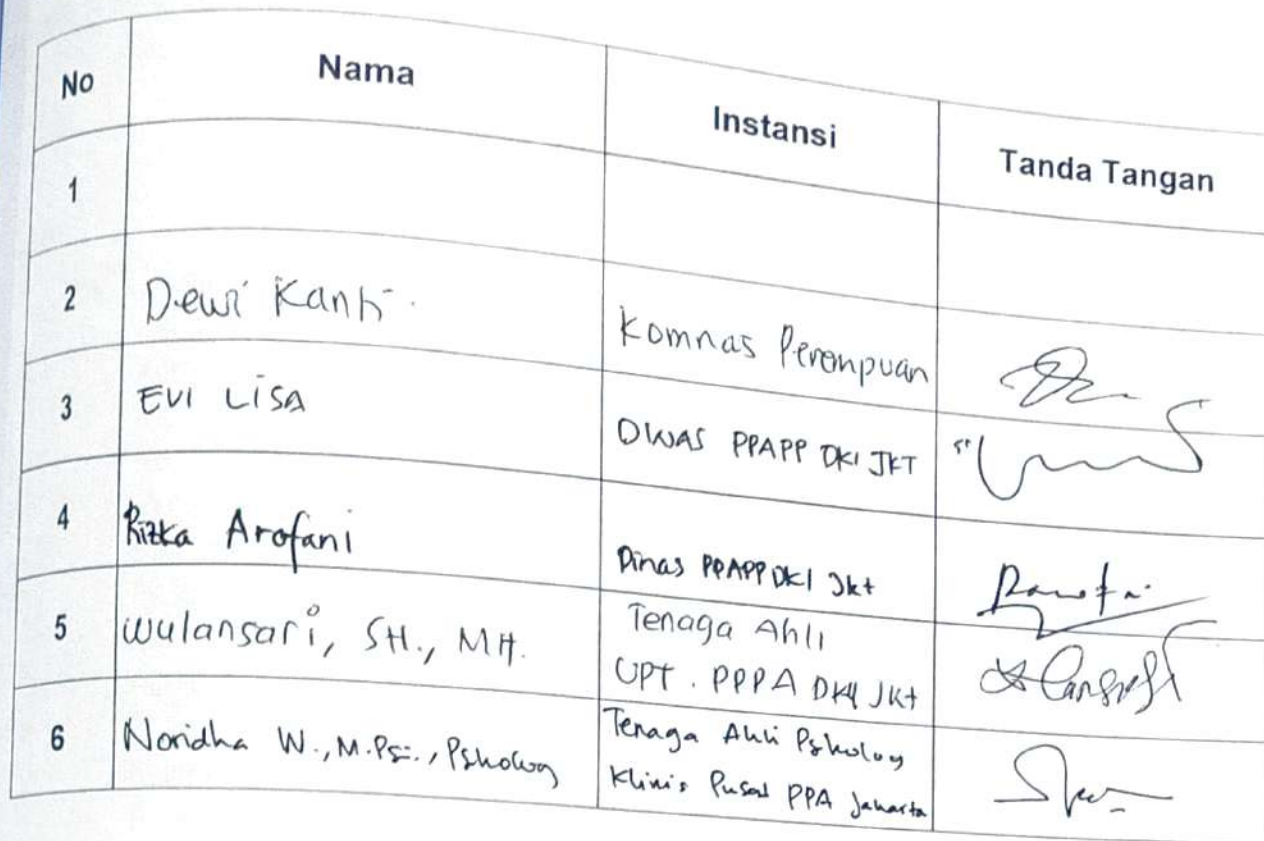 No Nama Instansi Tanda Tangan
1
2 Dewi Kanti Komnas Perempuan
3 EVI LISA DINAS PPAPP DKI JKT
4 Rizka Arofani Dinas PPAPP DKI Jkt
5 Wulansari, SH., MH. Tenaga Ahli
UPT. PPPA DKI Jkt
6 Noridha W., M.Psi., Psikolog Tenaga Ahli Psikolog
Klinis Pusat PPA Jakarta